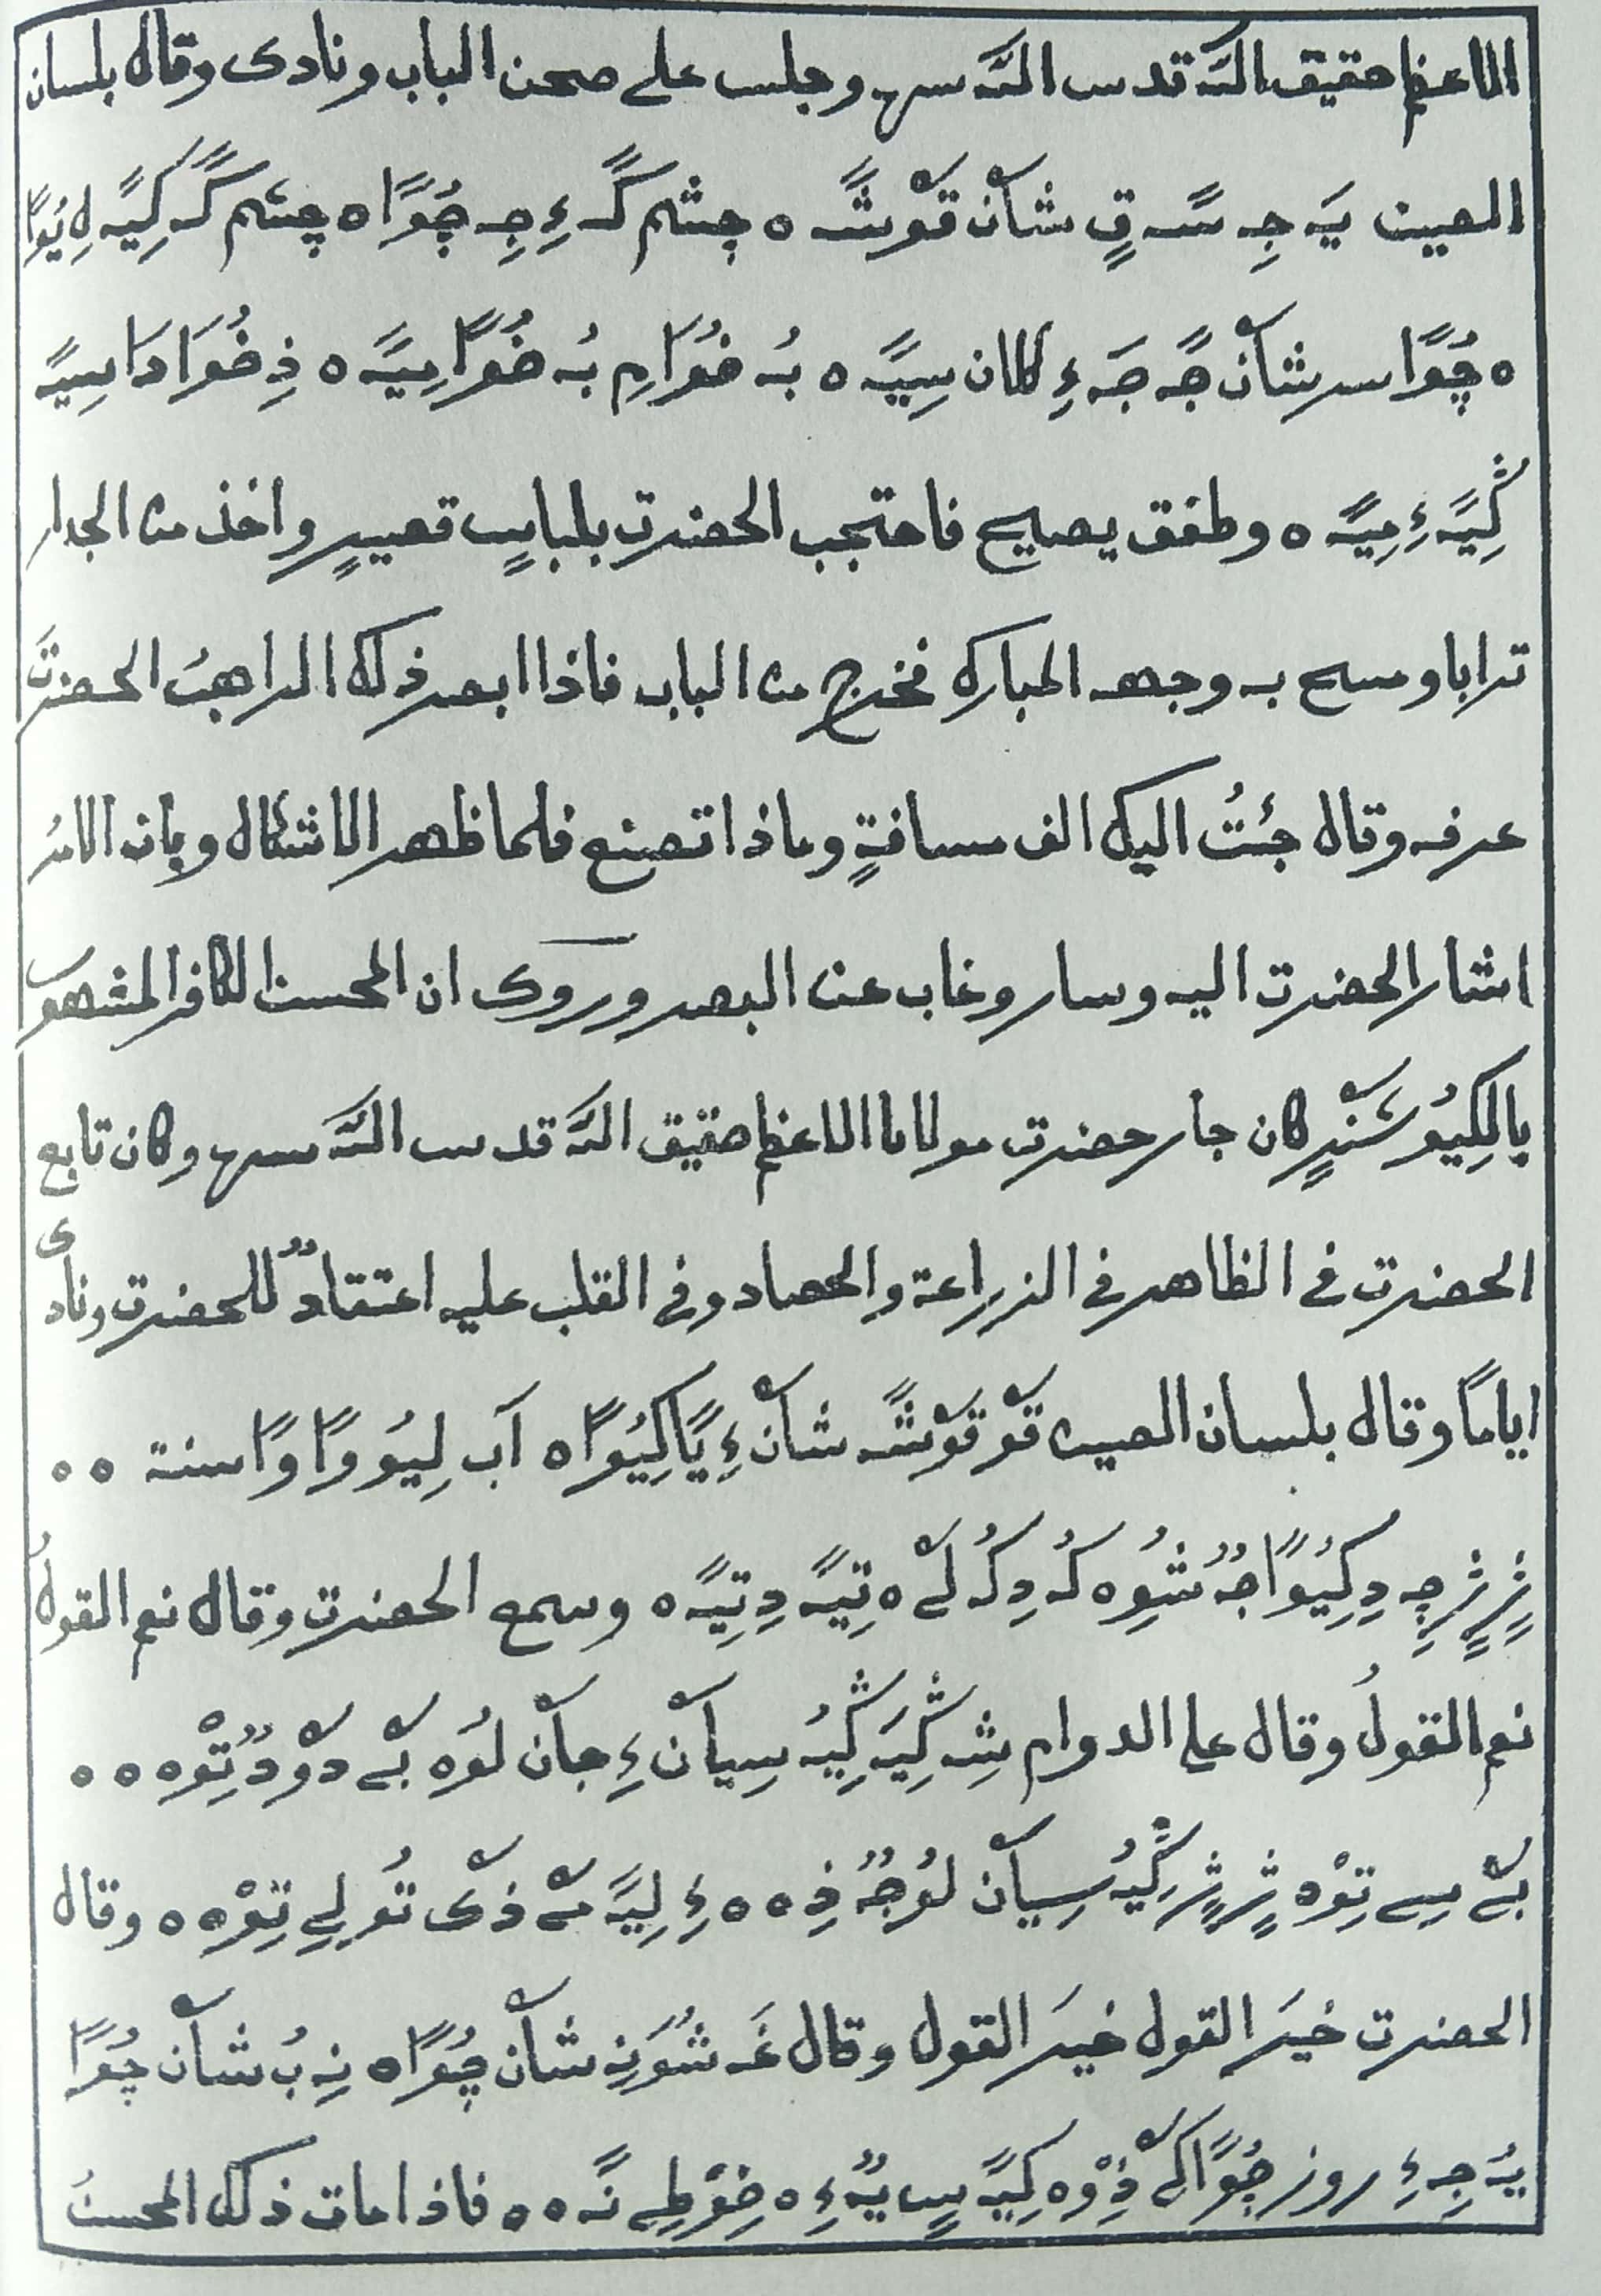 الاعظم حقيق الله قدس الله سره وجلس على صحن الباب ونادى وقال بلسان
الصين يَہ جِہ سًہ قٍ شاْن قوْشًہ ه چشم گًہ ءِ جِہ چُوًا ه چشم گًہ كِيًہ لِه يُوًا
ه چُوًا سر شاْن جًہ جَہ ءِ كلان سِيًہ ه بُہ خُوَامِ بُہ خُوًا مِيًہ ه ذِ خُوَا دَا سِيًہ
ءِ مِيًہ ه وطفق يصيح فاحتجب الحضرت بلباسٍ قصيرٍ واخذ من الجدار
ترابا ومسح به وجهه المبارك فخرج من الباب فاذا ابصر ذلك الراهبُ الحضرتَ
عرفه وقال جئتُ اليك الف مسافةٍ وماذا تصنع فلما ظهر الاشكال وبان الامرُ
اشار الحضرت اليه وسار وغاب عن البصر وروى ان المحسن الكافر المشهور
كان جار حضرت مولانا الاعظم حقيق الله قدس الله سره وكان تابع
الحضرت فى الظاهر فى الزراعة والحصاد وفى القلب عليه اعتقادٌ للحضرت ونادى
اياماً وقال بلسان الصين قوْ قوْشًہ شاْن ءِ يًا كِيُوًا ه آب لِيُو وًا وًا سنة ه ه
جِہ دِ كِيُوًا جٌہ شُوِه كُہ دِ كُہ لےْ ه تِيًہ دِ تِيًہ ه وسمع الحضرت وقال نعم القولُ
نعم القولُ وقال على الدوام شِہ سِياْن ءِ جاْن لُوِه بےْ دوْ دٌ تِوْه ه ه
بےْ سِے تِوْه سِياْن لُو جٌہ ذِ ه ه ءِ لِيًہ مےْ ذىْ تُو لِے تِوْه ه وقال
الحضرت خيرَ القول خيرَ القول وقال غَہ شُوَنِہ شاْن چُوًا ه نِہ بُ شاْن چُوًا
يہُ جِہ ءِ روز چُوًا كےْ ذِوْه كِيًہ سٍ يہٌ ءِ ه خِوْطِے نًہ ه ه فاذا مات ذلك المحسنُ